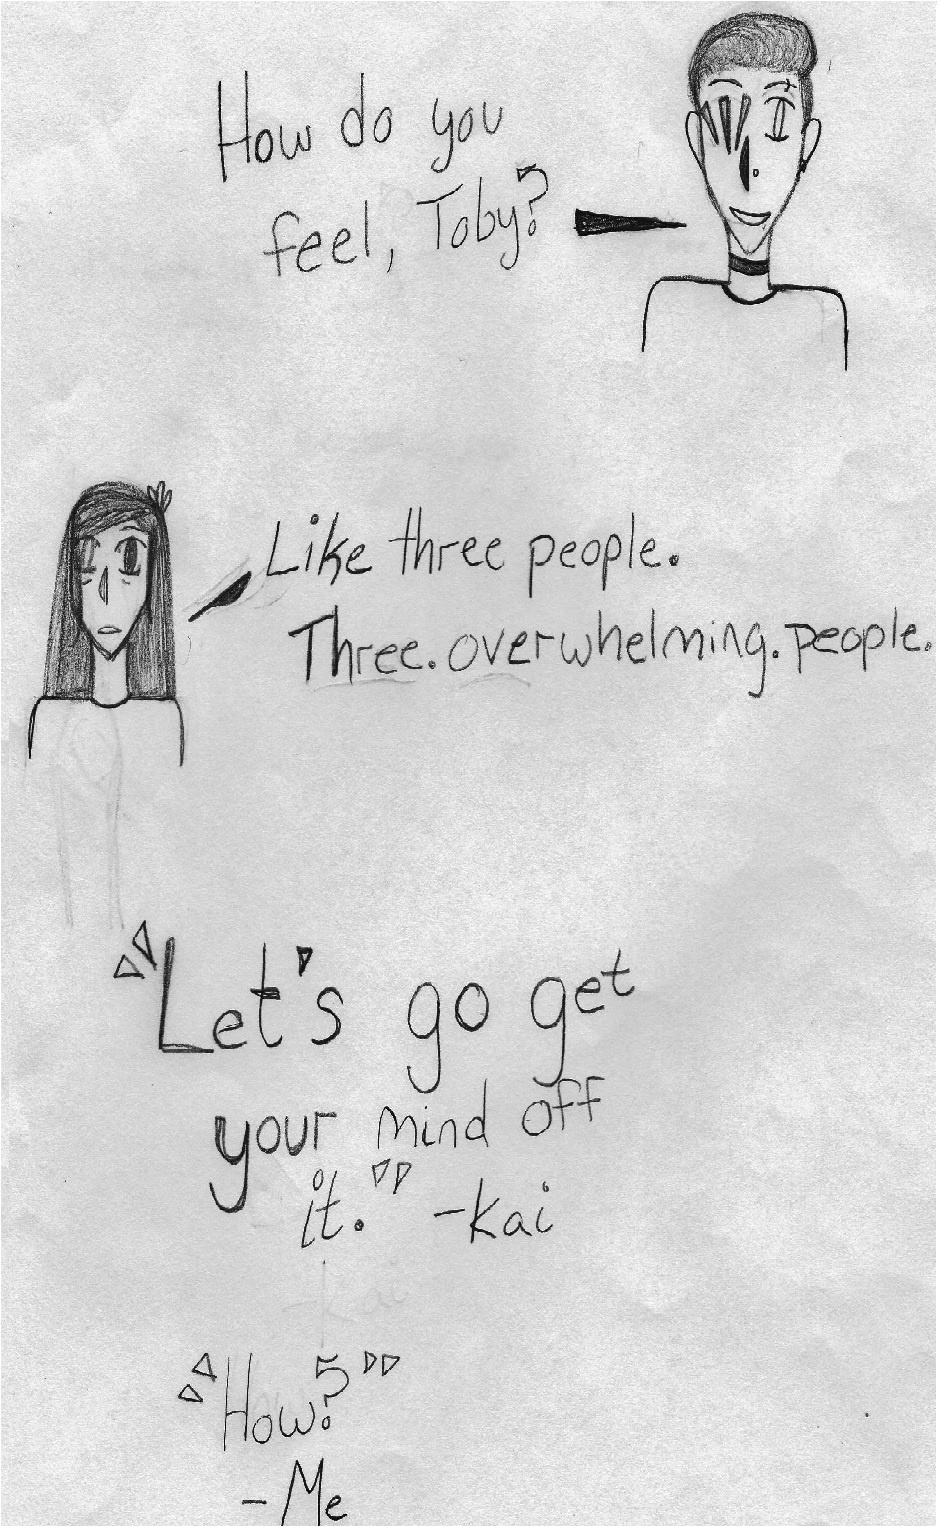 How do you
feel, Toby?
Like three people.
Three. overwhelming. people.
"Let's go get
your mind off
it." -kai
-kai
"How?"
- Me